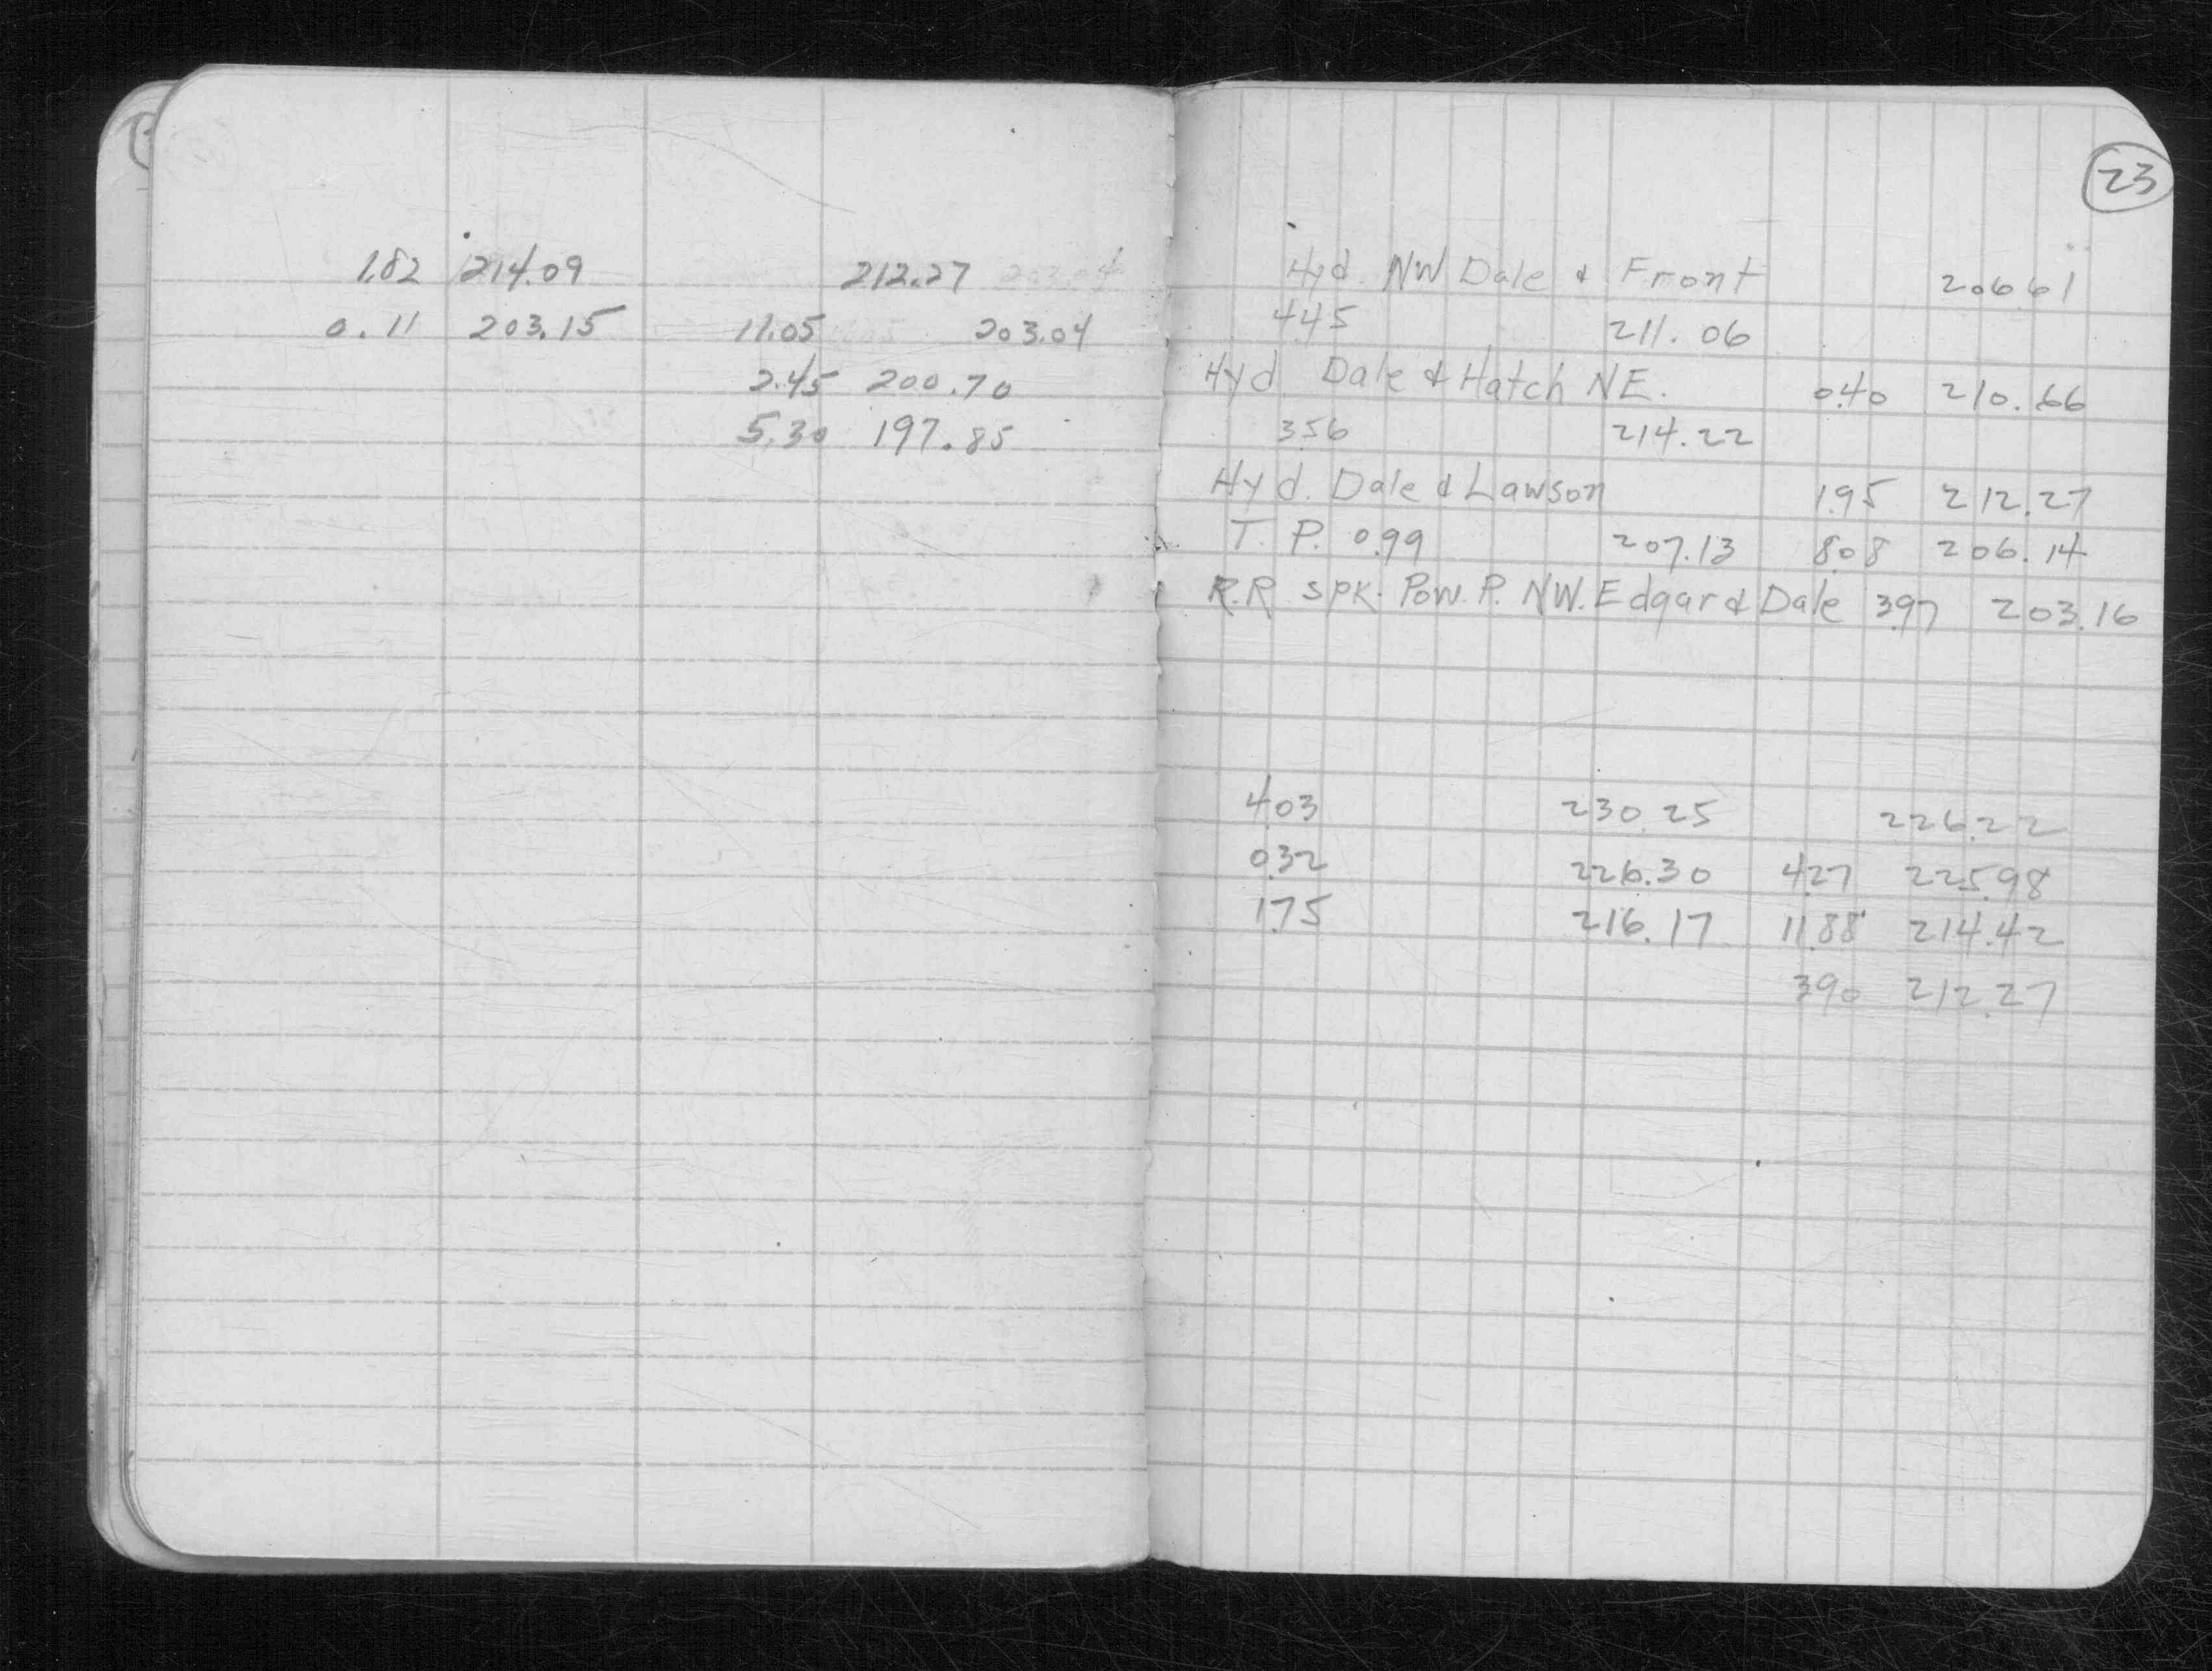 1.82 214.09 212.27
0.11 203.15 11.05 203.04
2.45 200.70
5.30 197.85
23
Hyd. NW Dale & Front 206.61
4.45 211.06
Hyd Dale & Hatch NE. 0.40 210.66
3.56 214.22
Hyd. Dale & Lawson 1.95 212.27
T. P. 0.99 207.13 8.08 206.14
R.R spk. Pow. P. NW. Edgar & Dale 3.97 203.16
4.03 230.25 226.22
0.32 226.30 4.27 225.98
1.75 216.17 11.88 214.42
3.90 212.27